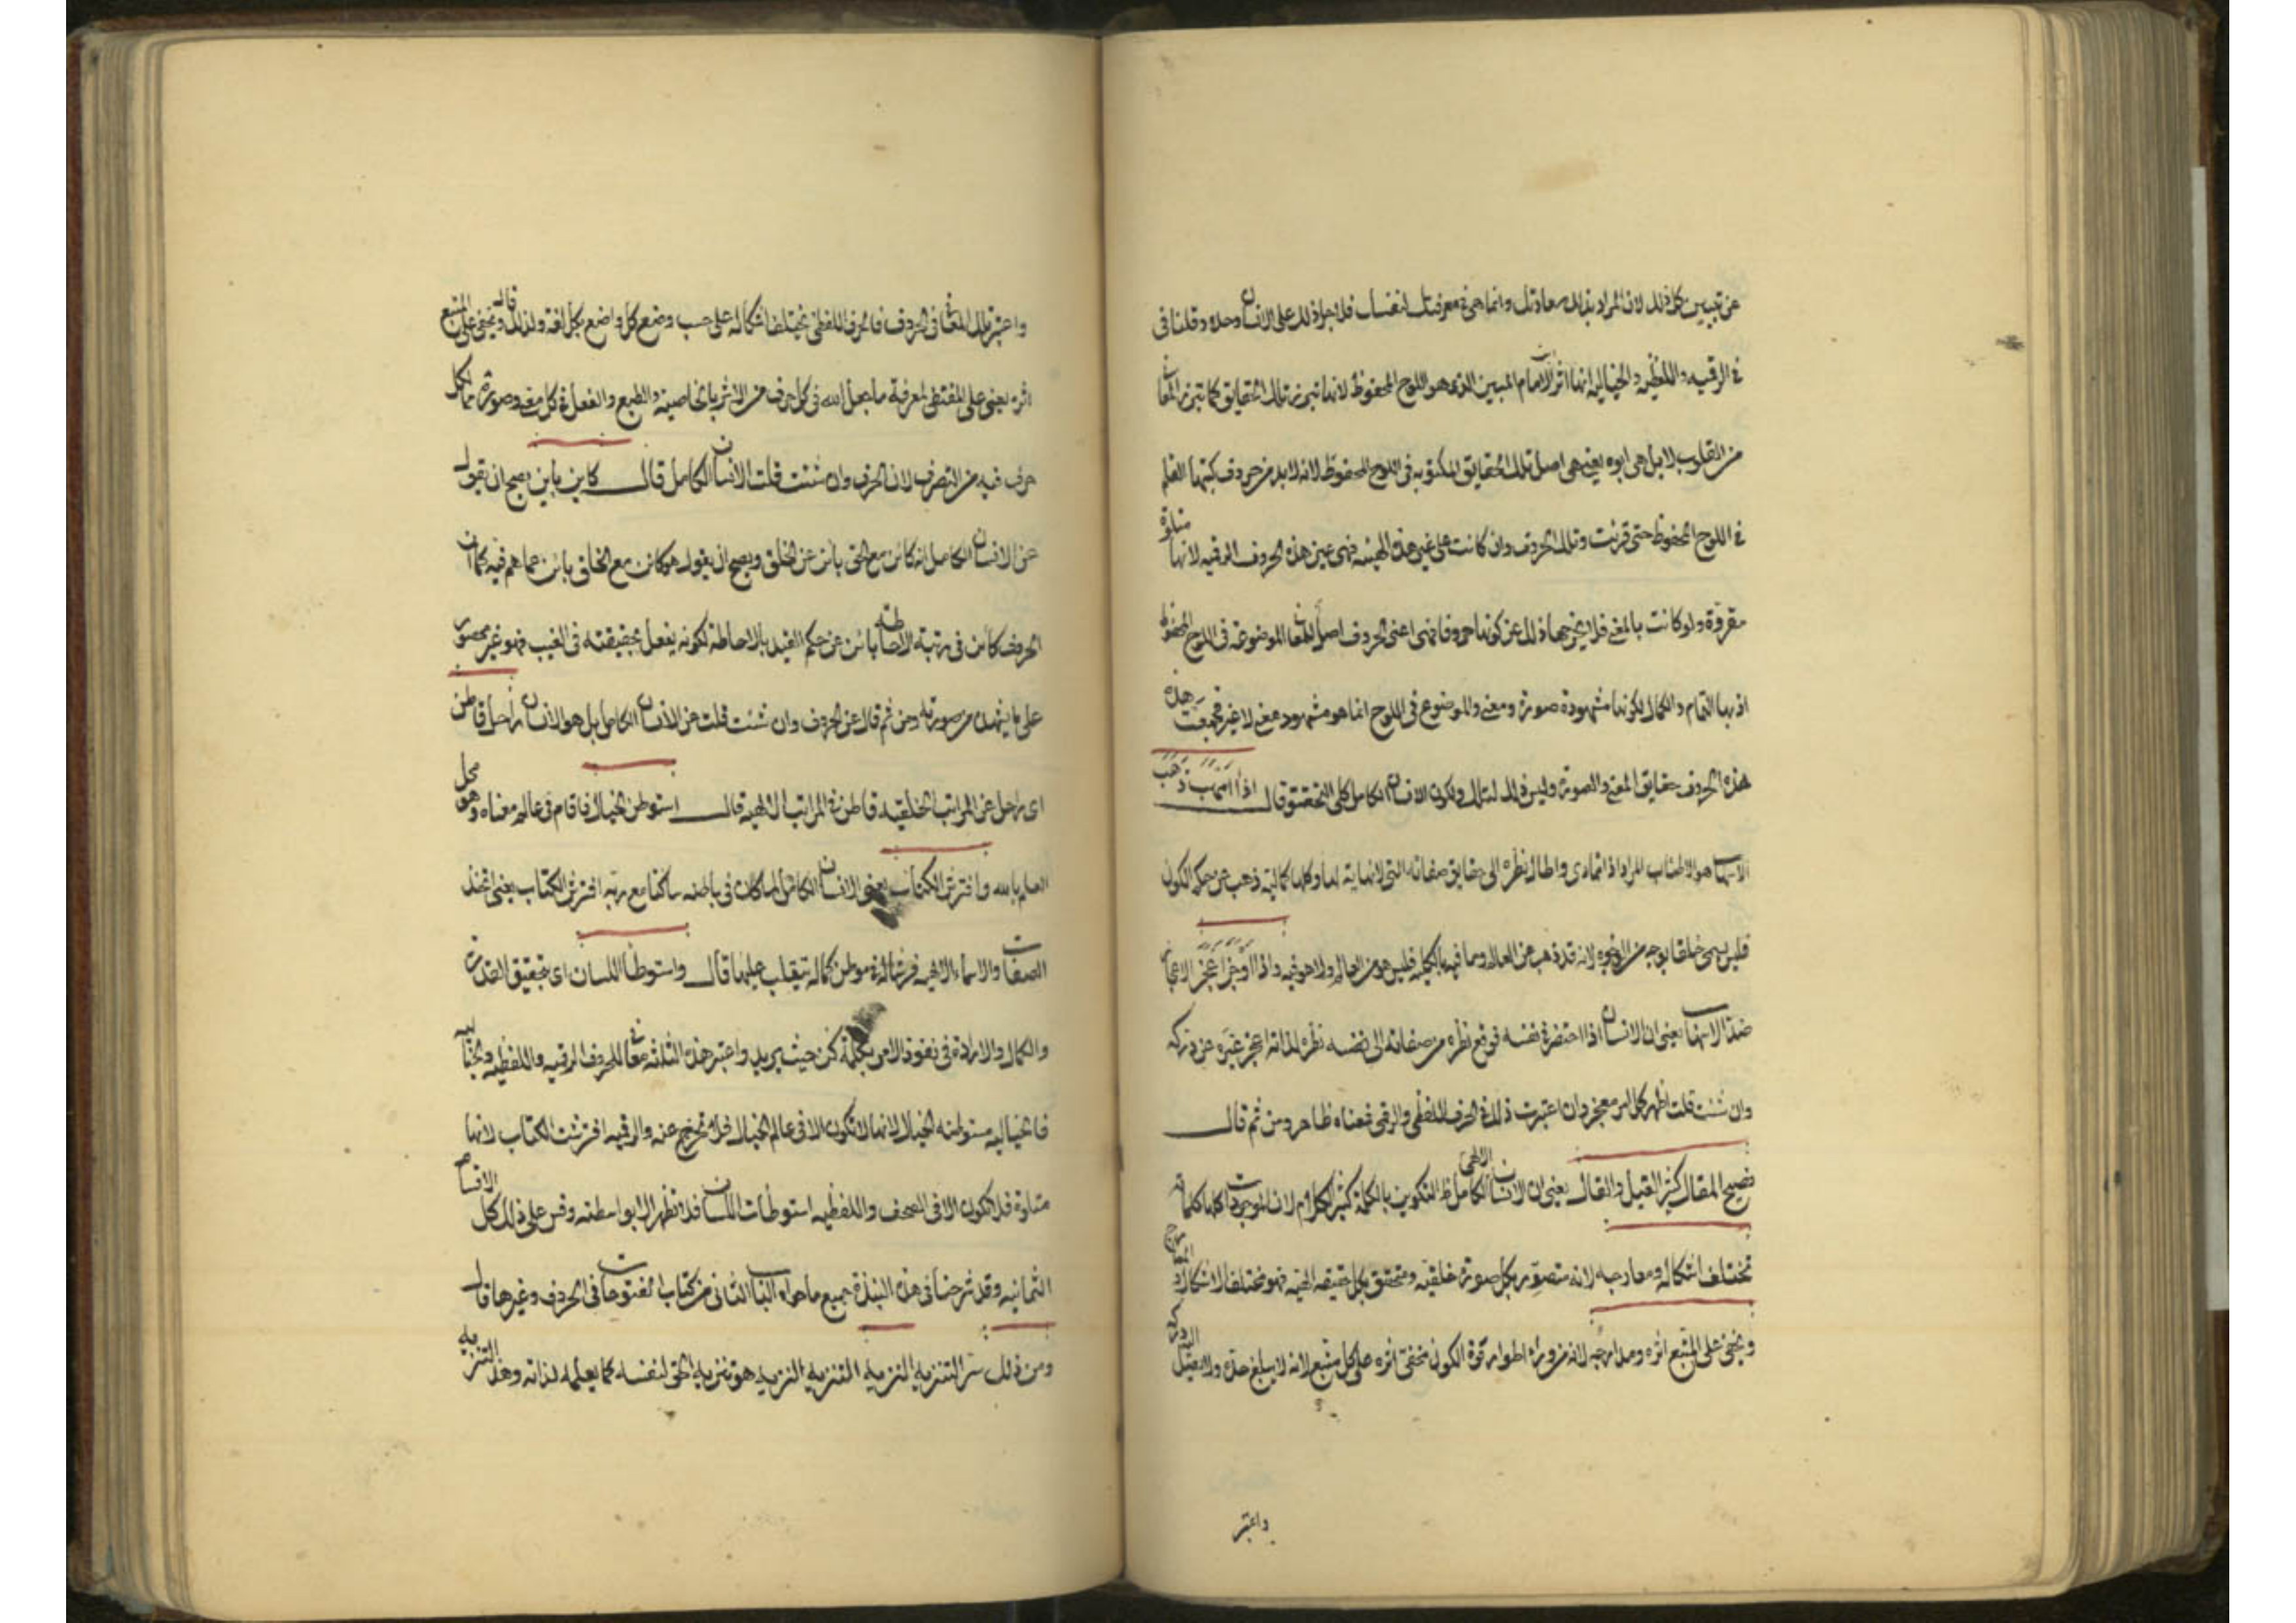 عن تبيين كل ذلك لان المراد بذلك سعادتك وانما هى فى معرفتك لنفسك فلا جرا ذلك على الانسان وحده وقلنا فى
فى الرقيه واللفظيه والخياليه انها اثر الامام المبين الذى هو اللوح المحفوظ لانها تبرز تلك الحقايق كما تبرز المعانى
من القلوب لا بل هى ابوه يعنى هى اصل تلك الحقايق المكتوبه فى اللوح المحفوظ لانه لا بد من حروف كتبها القلم
فى اللوح المحفوظ حتى قرئت وتلك الحروف وان كانت على غير هذه الهيئه فهى عين هذه الحروف الرقيه لانها متلوة
مقروة ولو كانت بالمعنى فلا يخرجها ذلك عن كونها حروفا فهى اعنى الحروف اصل المعانى الموضوعة فى اللوح المحفوظ
اذ بها التمام والكمال لكونها مشهودة صورة ومعنى والموضوع فى اللوح انما هو مشهود معنى لا غير فجمعت هذه
هذه الحروف حقايق المعنى والصورة وليس ذلك لتلك ولكون الانسان الكامل كلى التحقق قال اذا اسهب ذهب
الاسهاب هو الاطناب المراد اذا تمادى واطال نظره الى حقايق صفاته التى لا نهاية لها وكلها كمالية ذهب عن حكم الكون
فليس يسمى خلقا بوجه من الوجوه لانه قد ذهب عن العالم وما فيه بالكلية فليس هو من العالم ولا هو فيه واذا اوجز اعجز الايجاز
ضد الاسهاب يعنى ان الانسان اذا اختصر فى نفسه فوقع نظره من صفاته الى نفسه نظره لذاته اعجز غيره عن دركه
وان شئت قلت اظهر كل امر معجز وان اعتبرت ذلك فى الحرف اللفظى والرقى فمعناه ظاهر ومن ثم قال
فصيح المقال كثير القيل والقال يعنى ان الانسان الالهى الكامل التكوين بالكلمة كثير الكلام لان الموجودات كلها كلماته
تختلف اشكاله ومعارجه لانه متصور بكل صورة خلقيه ومتحقق بكل حقيقه الهيه فهو مختلف الاشكال والمعارج
ويخفى على المتبع اثره ومدارجه لانه من وراء اطوار قوة الكون فخفى اثره على كل متبع لانه لا يبلغ حده ولا يعقل
واعتبر
واعتبر تلك المعانى فى الحروف فالحرف اللفظى تختلف اشكاله على حسب وضع كل واضع بكل لغة ولذلك قال ويخفى على المتبع
اثره يعنى على المقتفى لمعرفة ما جعل الله فى كل حرف من الاثر بالخاصية والطبع والفعل فى كل معنى وصورة مما لكل
حرف فيه من التصرف لان الحرف وان شئت قلت الانسان الكامل قال كاين باين يصح ان يقول
عن الانسان الكامل انه كائن مع الحق بائن عن الخلق ويصح ان يقول هو كائن مع الخلق بائن عما هم فيه كما ان
الحروف كائن فى رتبة الاحاطه بائن عن حكم القيد بالاحاطة لكونه يفعل بحقيقته فى الغيب فهو غير محصور
على ما يشهد من صورته ومن ثم قال عن الحروف وان شئت قلت عن الانسان الكامل بل هو الانسان راحل قاطن
اى راحل عن المراتب الخلقيه قاطن فى المراتب الالهيه قال استوطن الخيال فاقام فى عالم معناه وهو محل
العلم بالله وافترش الكتاب يعنى الانسان الكامل لما كان فى باطنه ساكنا مع ربه افترش الكتاب يعنى اتخذ
الصفات والاسماء الالهيه فرشا له فى موطن كماله يتقلب عليها قال واستوطا اللسان اى تحقيق القدرة
والكمال والارادة فى نفوذ الامر بكلمة كن حيث يريد واعتبر هذه الثلثه معانى للحروف الرقيه واللفظيه والخياليه
فالخياليه مستوطنه الخيال لانها لا تكون الا فى عالم الخيال فلا تخرج عنه والرقيه افترشت الكتاب لانها
متلوة فلا تكون الا فى الصحف واللفظيه استوطات اللسان فلا تظهر الا بواسطته وقس على ذلك كل الاقسام
الثمانيه وقد شرحنا فى هذه النبذة جميع ما حواه الباب الثانى من كتاب الفتوحات فى الحروف وغيرها قال
ومن ذلك سر التنزيه النزيه التنزيه النزيه هو تنزيه الحق لنفسه كما يعلمه لذاته وهذا التنزيه